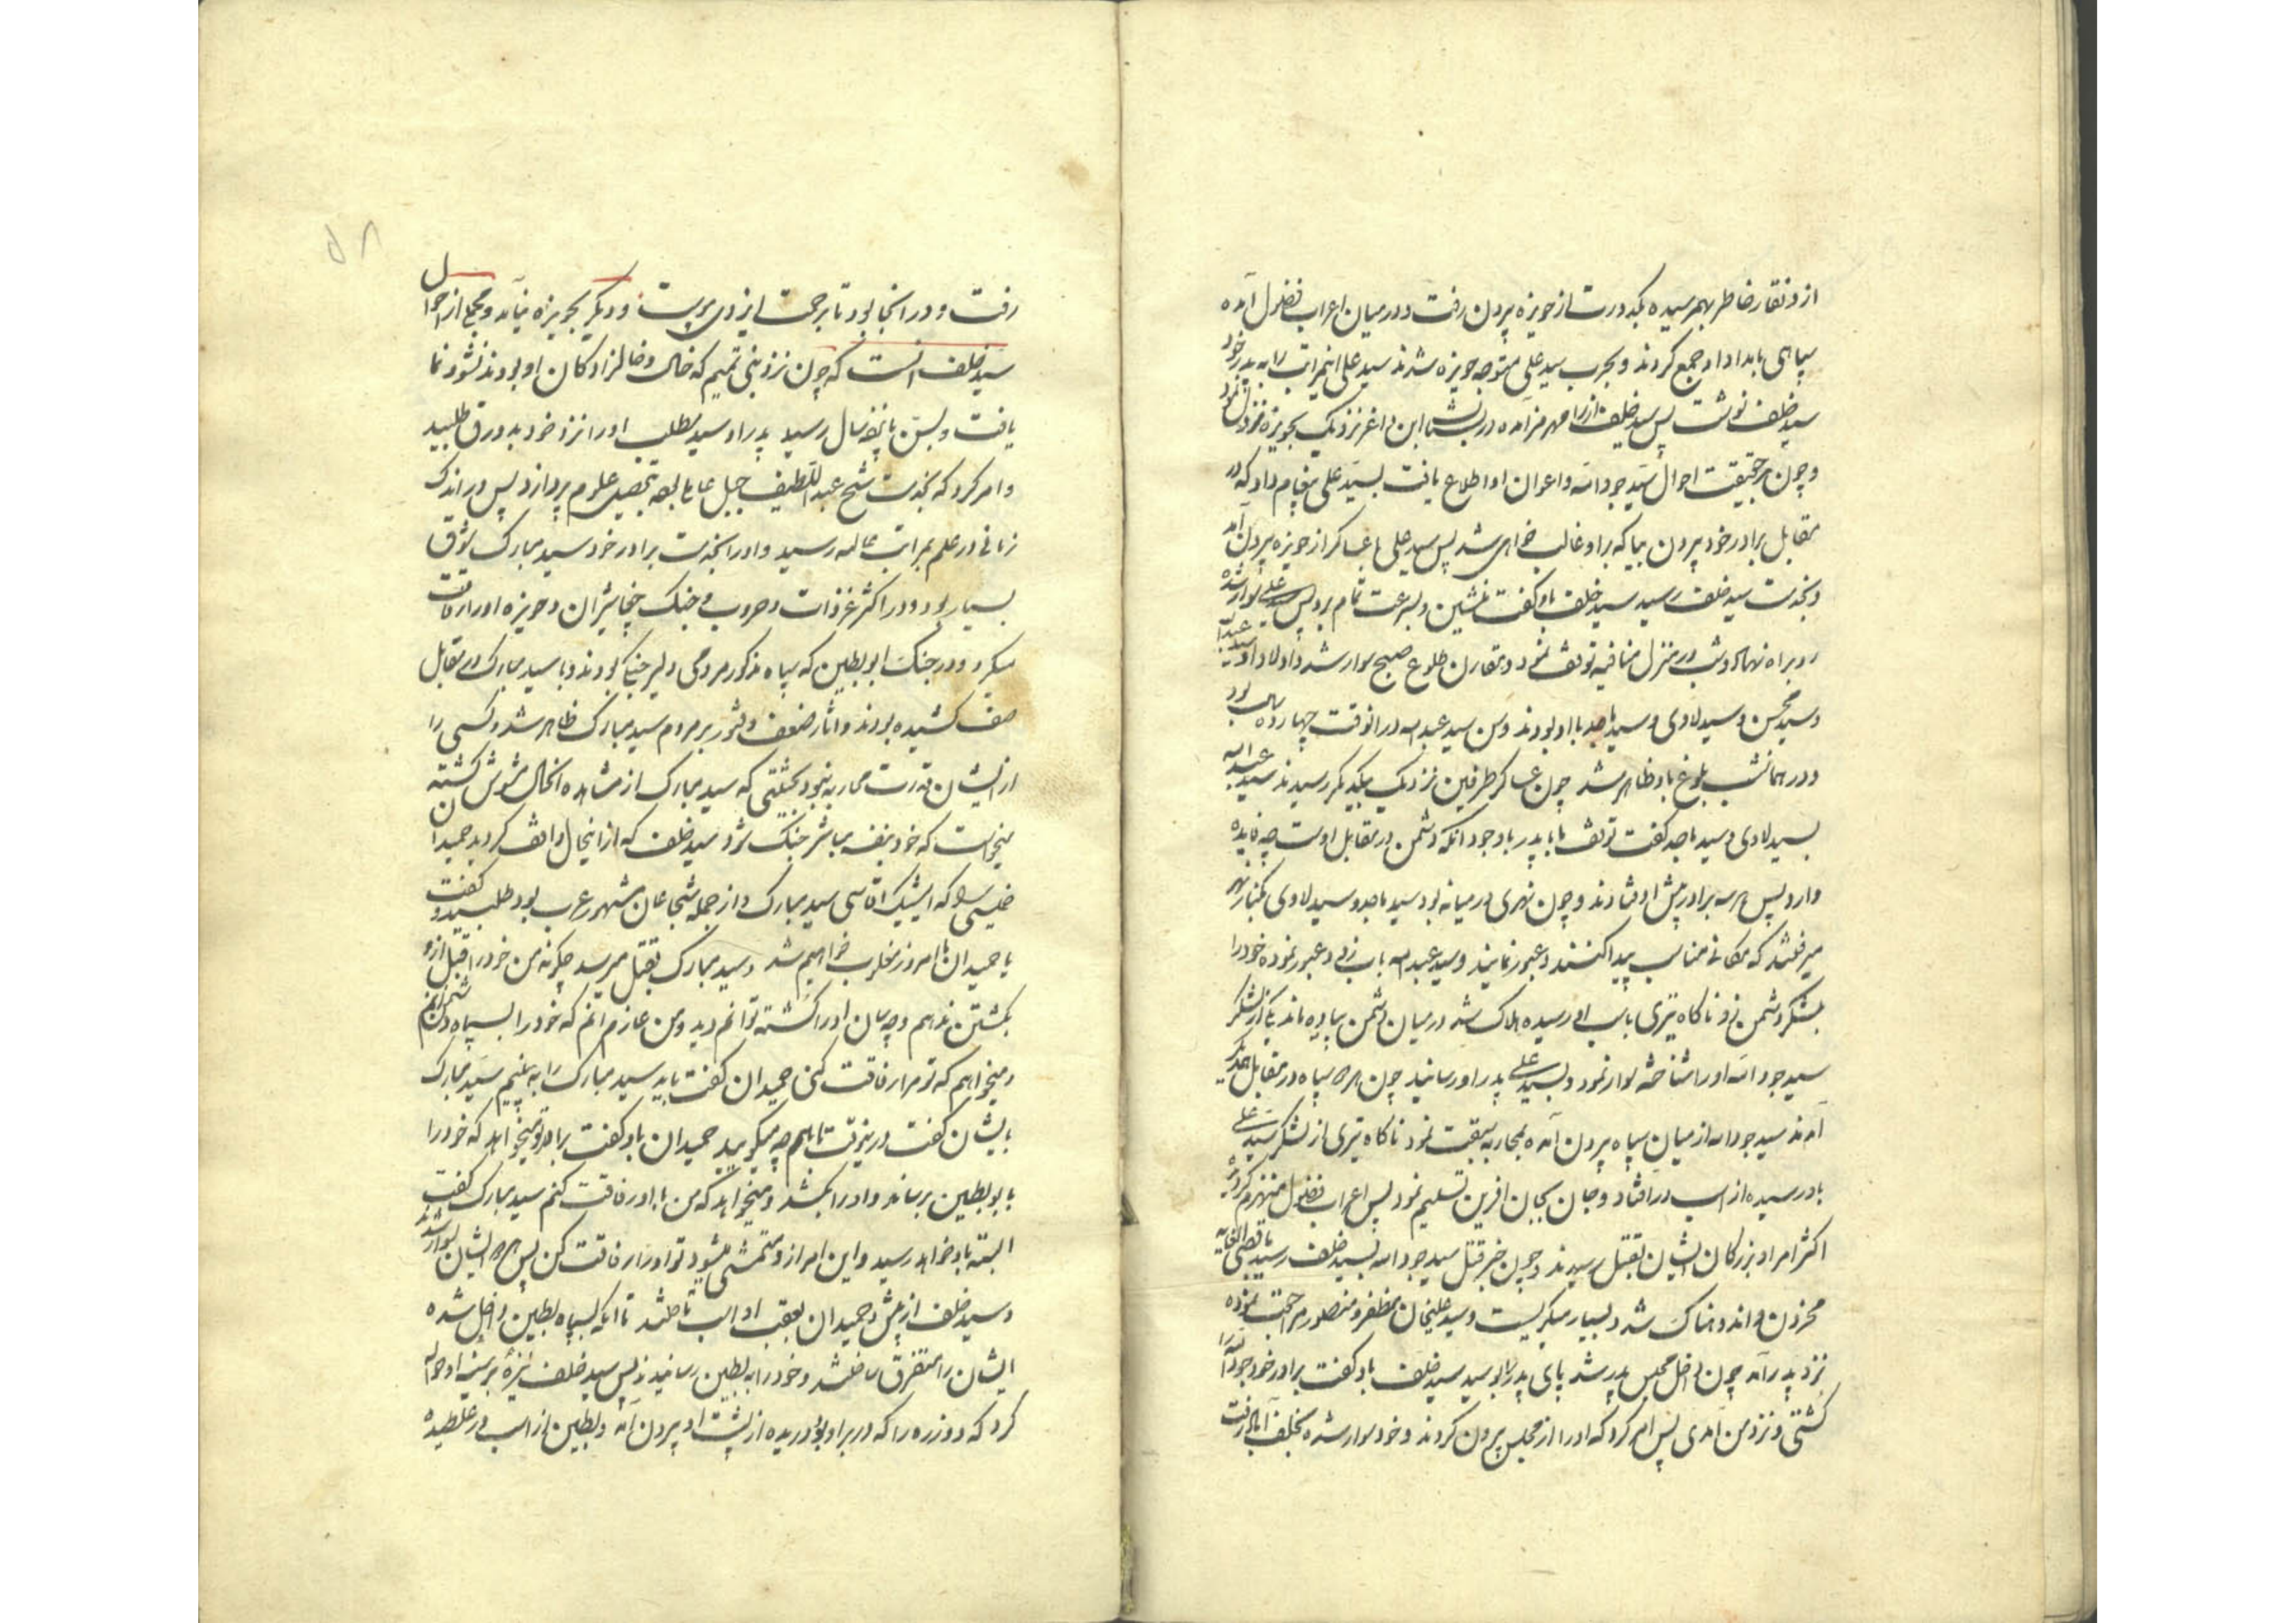 ازو نقار خاطر بهم رسیده بکدورت از حویزه بیرون رفت و در میان اعراب فضول آمده
سپاهی بامداد او جمع کردند و بحرب سید علی متوجه حویزه شدند سید علی اینمراتب را به پدر خود
سید خلف نوشت پس سید خلف از رامهرمز آمده در نزدیک بحویزه نزول نمود
و چون بر حقیقت احوال سید جودالله و اعوان او اطلاع یافت بسید علی پیغام داد که در
مقابل برادر خود بیرون بیا که بر او غالب خواهی شد پس سید علی با عساکر از حویزه بیرون آمد
و بخدمت سید خلف رسید سید خلف باو کفت منشین و بسرعت تمام برو پس سید علی سوار شده
رو براه نهاد و شب در منزل منافیه توقف نمود و مقارن طلوع صبح سوار شد و اولاد او سید عبدالله
و سید محسن و سید لاوی و سید ماجد با او بودند و سن سید عبدالله در انوقت چهارده سال بود
و در همانشب بلوغ باو ظاهر شد چون عساکر طرفین نزدیک بیکدیکر رسیدند سید عبدالله
بسید لاوی و سید ماجد کفت توقف ما با پدر با وجود آنکه دشمن در مقابل اوست چه فایده
دارد پس هر سه برادر پیش افتادند و چون نهری در میانه بود سید ماجد و سید لاوی بکنار نهر
میرفتند که مکانی مناسب پیدا کنند و عبور نمایند و سید عبدالله باب زده و عبور نموده خود را
بلشکر دشمن زد ناکاه تیری باسب او رسیده هلاک شد در میان دشمن پیاده ماند یکی از لشکر
سید جودالله او را شناخته سوار نمود و بسید علی پدر او رسانید چون هر دو سپاه در مقابل یکدیکر
آمدند سید جودالله از میان سپاه بیرون آمده بمحاربه سبقت نمود ناکاه تیری از لشکر سید علی
باو رسیده از اسب در افتاد و جان بجان افرین تسلیم نمود پس اعراب فضول منهزم کردیده
اکثر امرا و بزرکان ایشان بقتل رسیدند و چون خبر قتل سید جودالله بسید خلف رسید باقصی الغایه
محزون و اندوهناک شد و بسیار میکریست و سید علیخان مظفر و منصور مراجعت نموده
نزد پدر آمد چون داخل مجلس پدر شد پای پدر را بوسید سید خلف باو کفت برادر خود جودالله را
کشتی و نزد من آمدی پس امر کرد که او را از مجلس بیرون کردند و خود سوار شده بخلف آباد رفت
رفت و در انجا بود تا برحمت ایزدی پیوست و دیکر بحویزه نیامد و مجمع از احوال
سید خلف انست که چون نزد بنی تمیم که خال و خالزادکان او بودند نشو و نما
یافت و بسن پانزده سال رسید پدر او سید مطلب او را نزد خود بدورق طلبید
و امر کرد که بخدمت شیخ عبداللطیف جبل عاملی بتحصیل علوم پردازد پس در اندک
زمانی در علم بمراتب عالیه رسید و او را بخدمت برادر خود سید مبارک شوق
بسیار بود و در اکثر غزوات و حروب و جنک حویزه او را رفاقت
میکرد و در جنک ابو بطین که سپاه مذکور مردمی دلیر جنکی بودند و با سید مبارک در مقابل
صف کشیده بودند و اثار ضعف و فتور بر مردم سید مبارک ظاهر شد و کسی را
از ایشان قدرت محاربه نبود بحیثیتی که سید مبارک از مشاهده انحال مشوش کشته
میخواست که خود بنفسه مباشر جنک شود سید خلف که از اینحال واقف کردید حمیدان
خلیسی را که ایشیک اقاسی سید مبارک و از جمله شجاعان مشهور عرب بود طلبید و کفت
یا حمیدان ما امروز مغلوب خواهیم شد و سید مبارک بقتل میرسد چکونه من خود را قبل ازو
بکشتن ندهم و چه سان او را کشته توانم دید و من عازم آنم که خود را بسپاه دشمن زنم
و میخواهم که تو مرا رفاقت کنی حمیدان کفت باید سید مبارک را به بینیم سید مبارک
بایشان کفت درینوقت تا باهم چه میکویید حمیدان باو کفت برادر تو میخواهد که خود را
بابو بطین برساند و او را بکشد و میخواهد که من با او رفاقت کنم سید مبارک کفت
البته باو خواهد رسید و این امر ازو متمشی میشود تو او را رفاقت کن پس هر دو ایشان سوار شدند
و سید خلف از پیش و حمیدان بعقب او اسب تاختند تا آنکه بسپاه بطین داخل شده
ایشان را متفرق ساختند و خود را به بطین رسانیدند پس سید خلف نیزه بر سینه او حواله
کرد که دو زره را که در بر او بود دریده از پشت او بیرون آمد و بطین از اسب در غلطیده